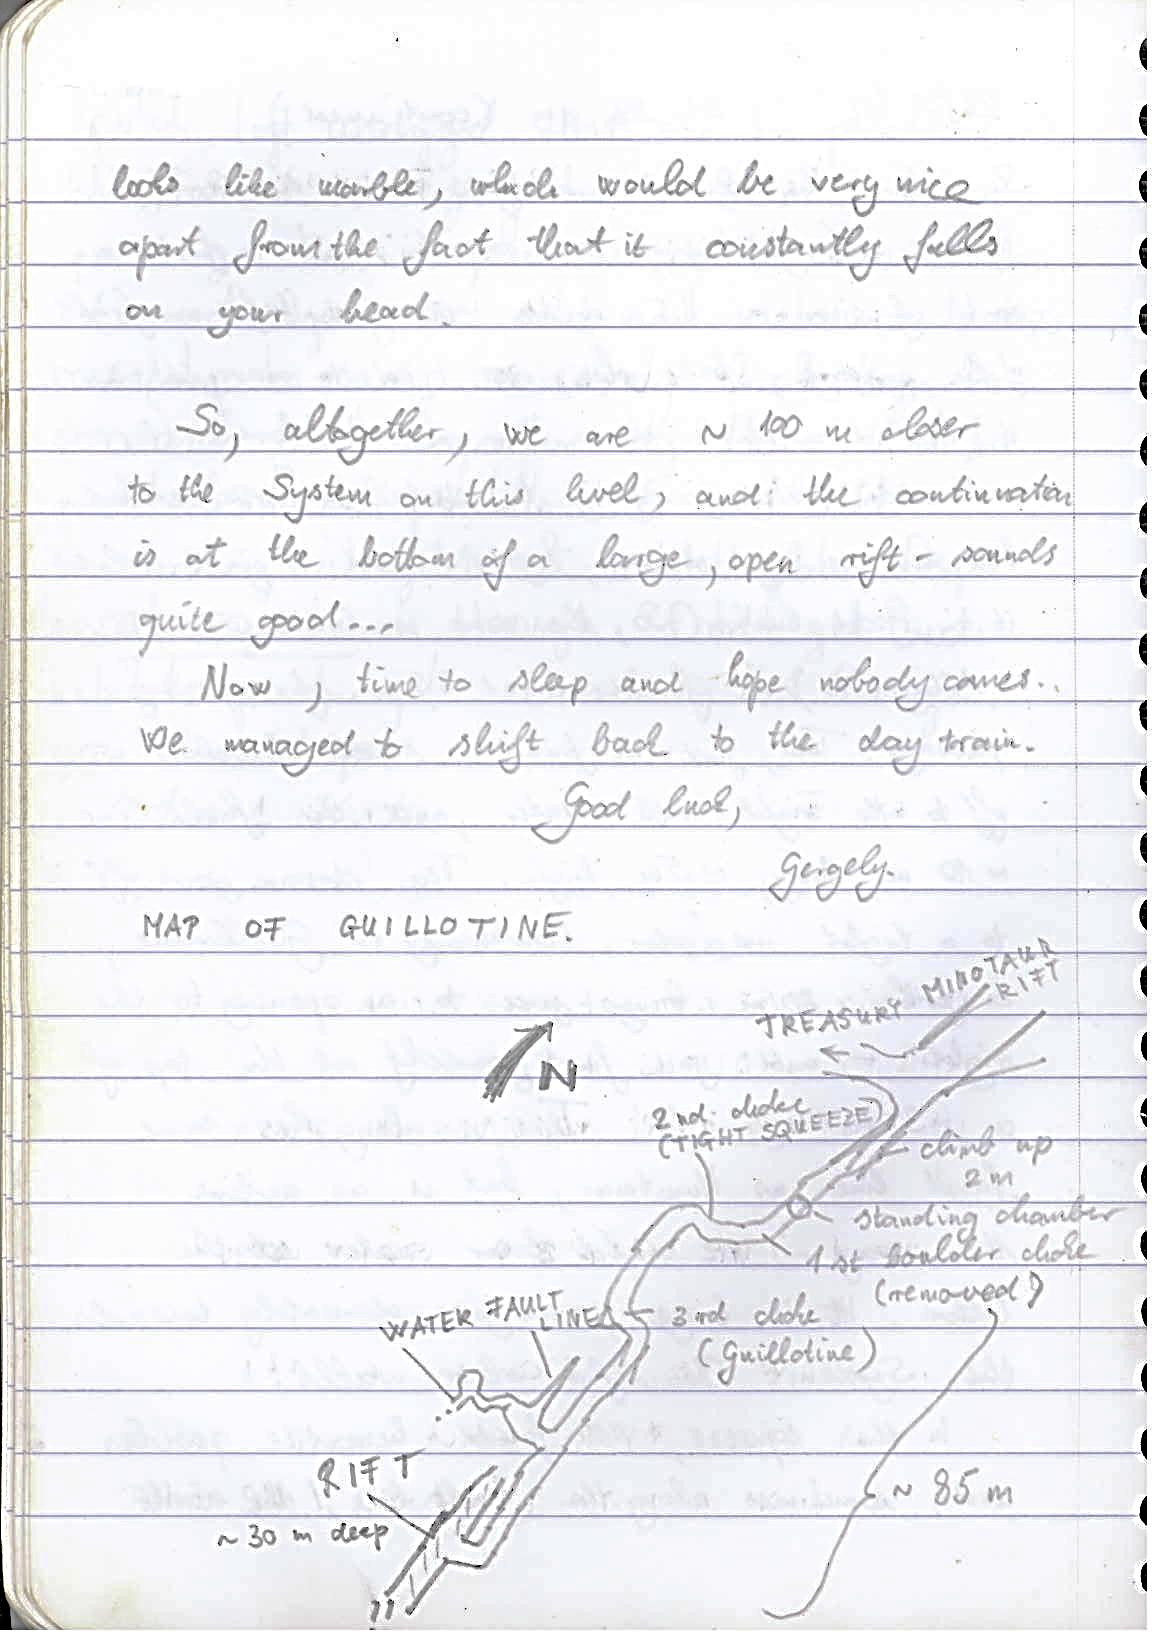 looks like marble, which would be very nice
apart from the fact that it constantly falls
on your head.
So, altogether, we are ~ 100 m closer
to the System on this level, and: the continuation
is at the bottom of a large, open rift - sounds
quite good...
Now, time to sleep and hope nobody comes..
We managed to shift back to the day train.
Good luck,
Gergely.
MAP OF GUILLOTINE.
MINOTAUR
RIFT
TREASURY
N
2nd. choke
(TIGHT SQUEEZE)
climb up
2 m
standing chamber
1st boulder choke
(removed)
WATER
FAULT
LINE
3rd choke
(Guillotine)
RIFT
~ 30 m deep
~ 85 m